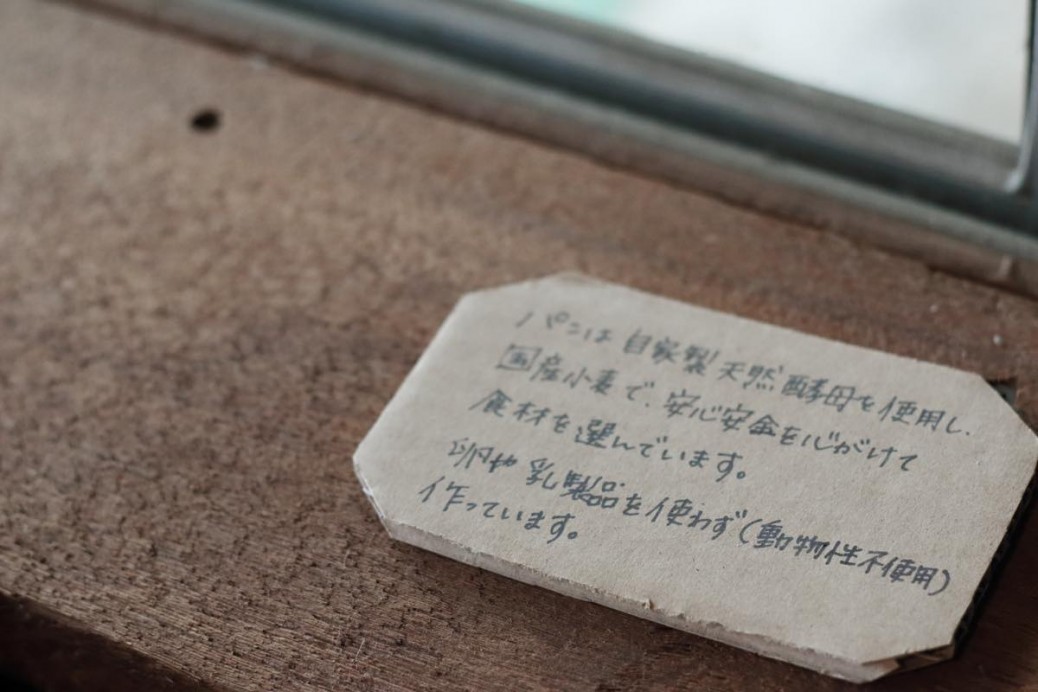 パンは自家製天然酵母を使用し、
国産小麦で、安心安全を心がけて
食材を選んでいます。
卵や乳製品を使わず(動物性不使用)
作っています。